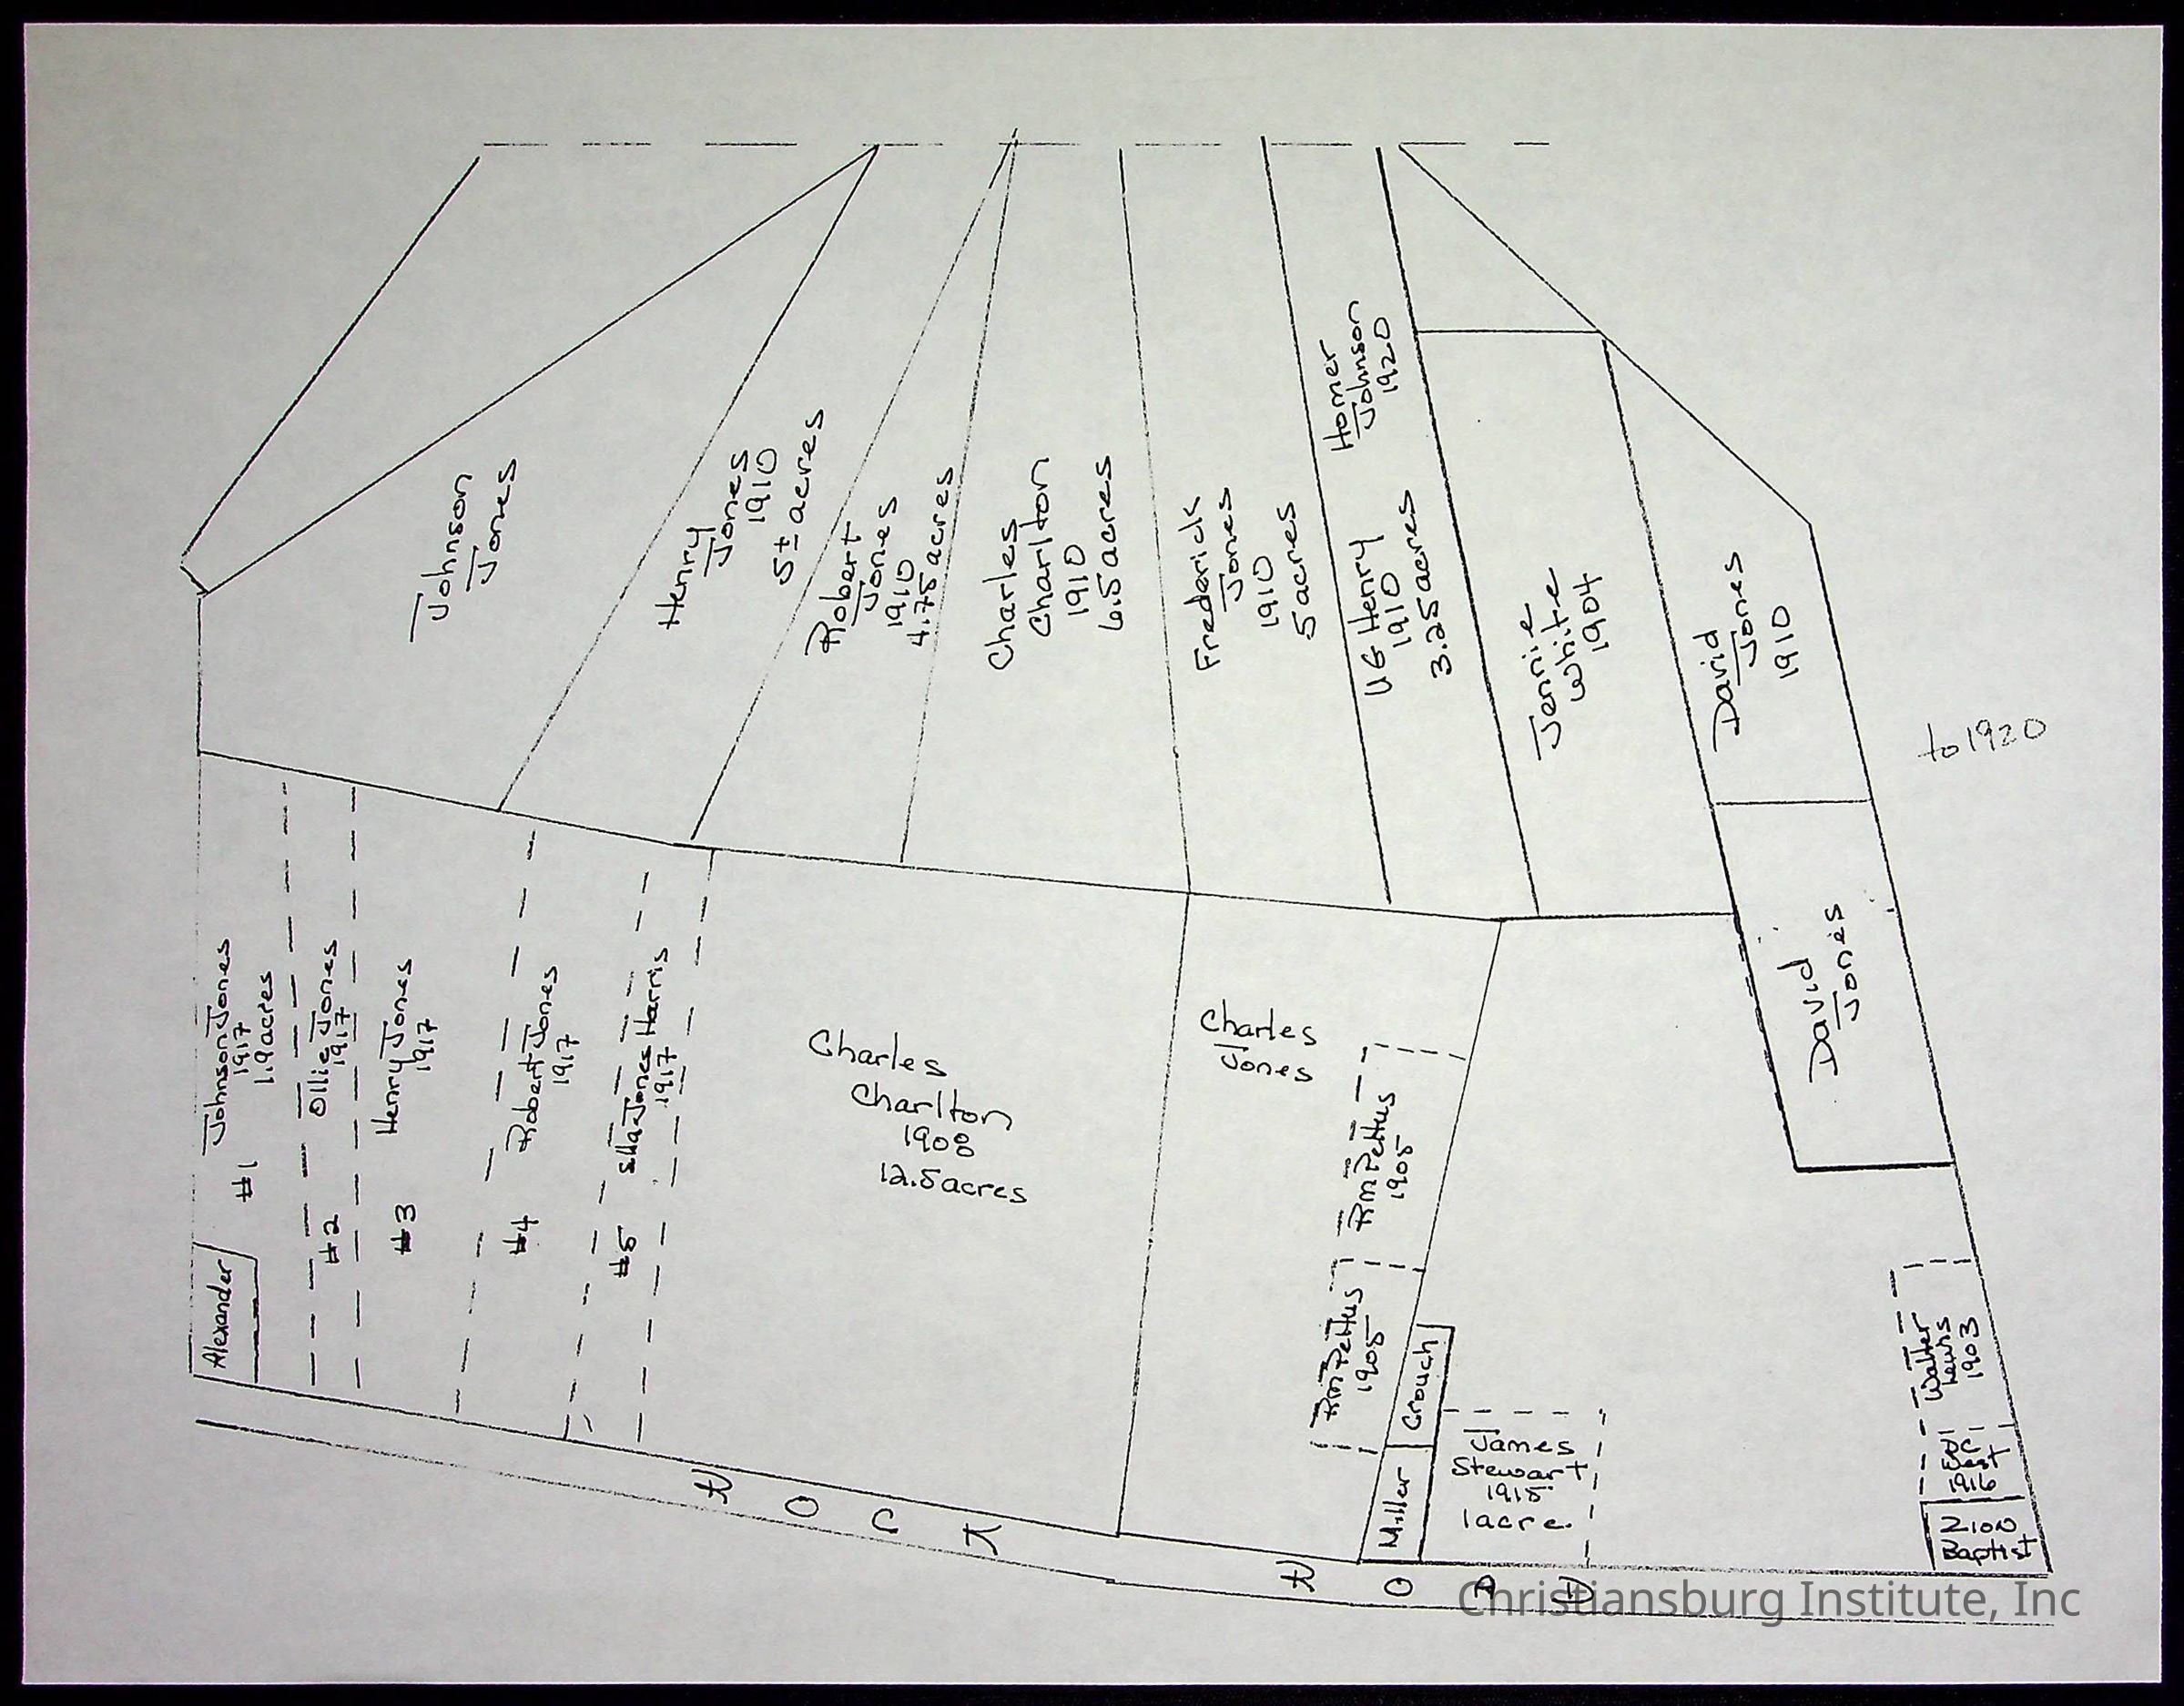 Johnson
Jones
Henry
Jones
1910
5± acres
Robert
Jones
1910
4.75 acres
Charles
Charlton
1910
6.5 acres
Frederick
Jones
1910
5 acres
Homer
Johnson
1920
U G Henry
1910
3.25 acres
Jennie
White
1904
David
Jones
1910
to 1920
#1 Johnson Jones
1917
1.9 acres
Alexander
#2 Ollie Jones
1917
#3 Henry Jones
1917
#4 Robert Jones
1917
#5 Ella Jones Harris
1917
Charles
Charlton
1908
12.5 acres
Charles
Jones
Rm Pettus
1905
Rm Pettus
1905
Miller
Crouch
James
Stewart
1915
1 acre.
David
Jones
Walter
Lewis
1903
West
1916
Zion
Baptist
ROCK
ROAD
Christiansburg Institute, Inc